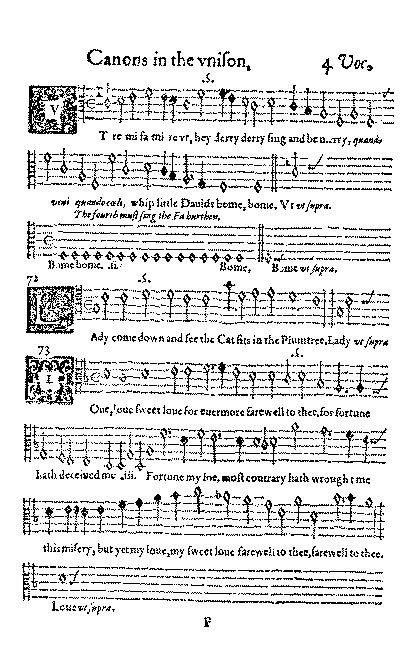 Canons in the vnison, 4 Voc.
.S.
V T re mi fa mi re vt, hey derry derry sing and be merry, quando
veni quando cœli, whip little Dauids bome, bome. Vt vt supra.
The fourth must sing the Fa burthen.
Bome bome .ii. Bome, Bome vt supra.
72 .S.
L Ady come down and see the Cat sits in the Plumtree, Lady vt supra
73 .S.
L Oue, loue sweet loue for euermore farewell to thee, for fortune
hath deceiued me .iii. Fortune my foe, most contrary hath wrought me
this misery, but yet my loue, my sweet loue farewell to thee, farewell to thee.
Loue vt supra.
P